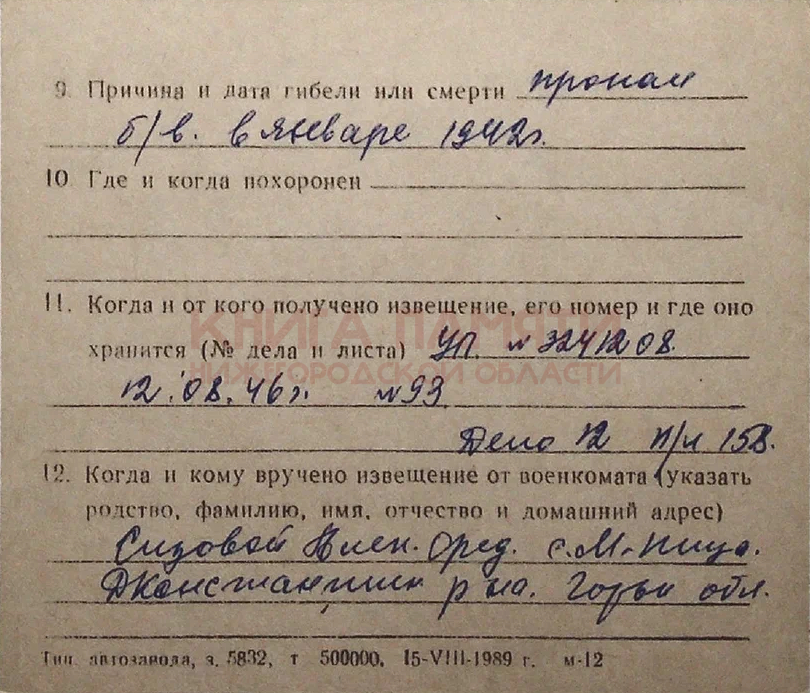 9. Причина и дата гибели или смерти пропал
б/в. в январе 1942г.
10. Где и когда похоронен
11. Когда и от кого получено извещение, его номер и где оно
КНИГА ПАМЯТИ
хранится (№ дела и листа) УП. №3241208.
НИЖЕГОРОДСКОЙ ОБЛАСТИ
12.08.46г. №93
Дело 12 п/н 158.
12. Когда и кому вручено извещение от военкомата (указать
родство, фамилию, имя, отчество и домашний адрес)
Сизовой Елен. Фед. с.М-Пица.
ДКонстантин р на. Горьк обл.
Тип. автозавода, з. 5832, т 500000, 15-VIII-1989 г. м-12